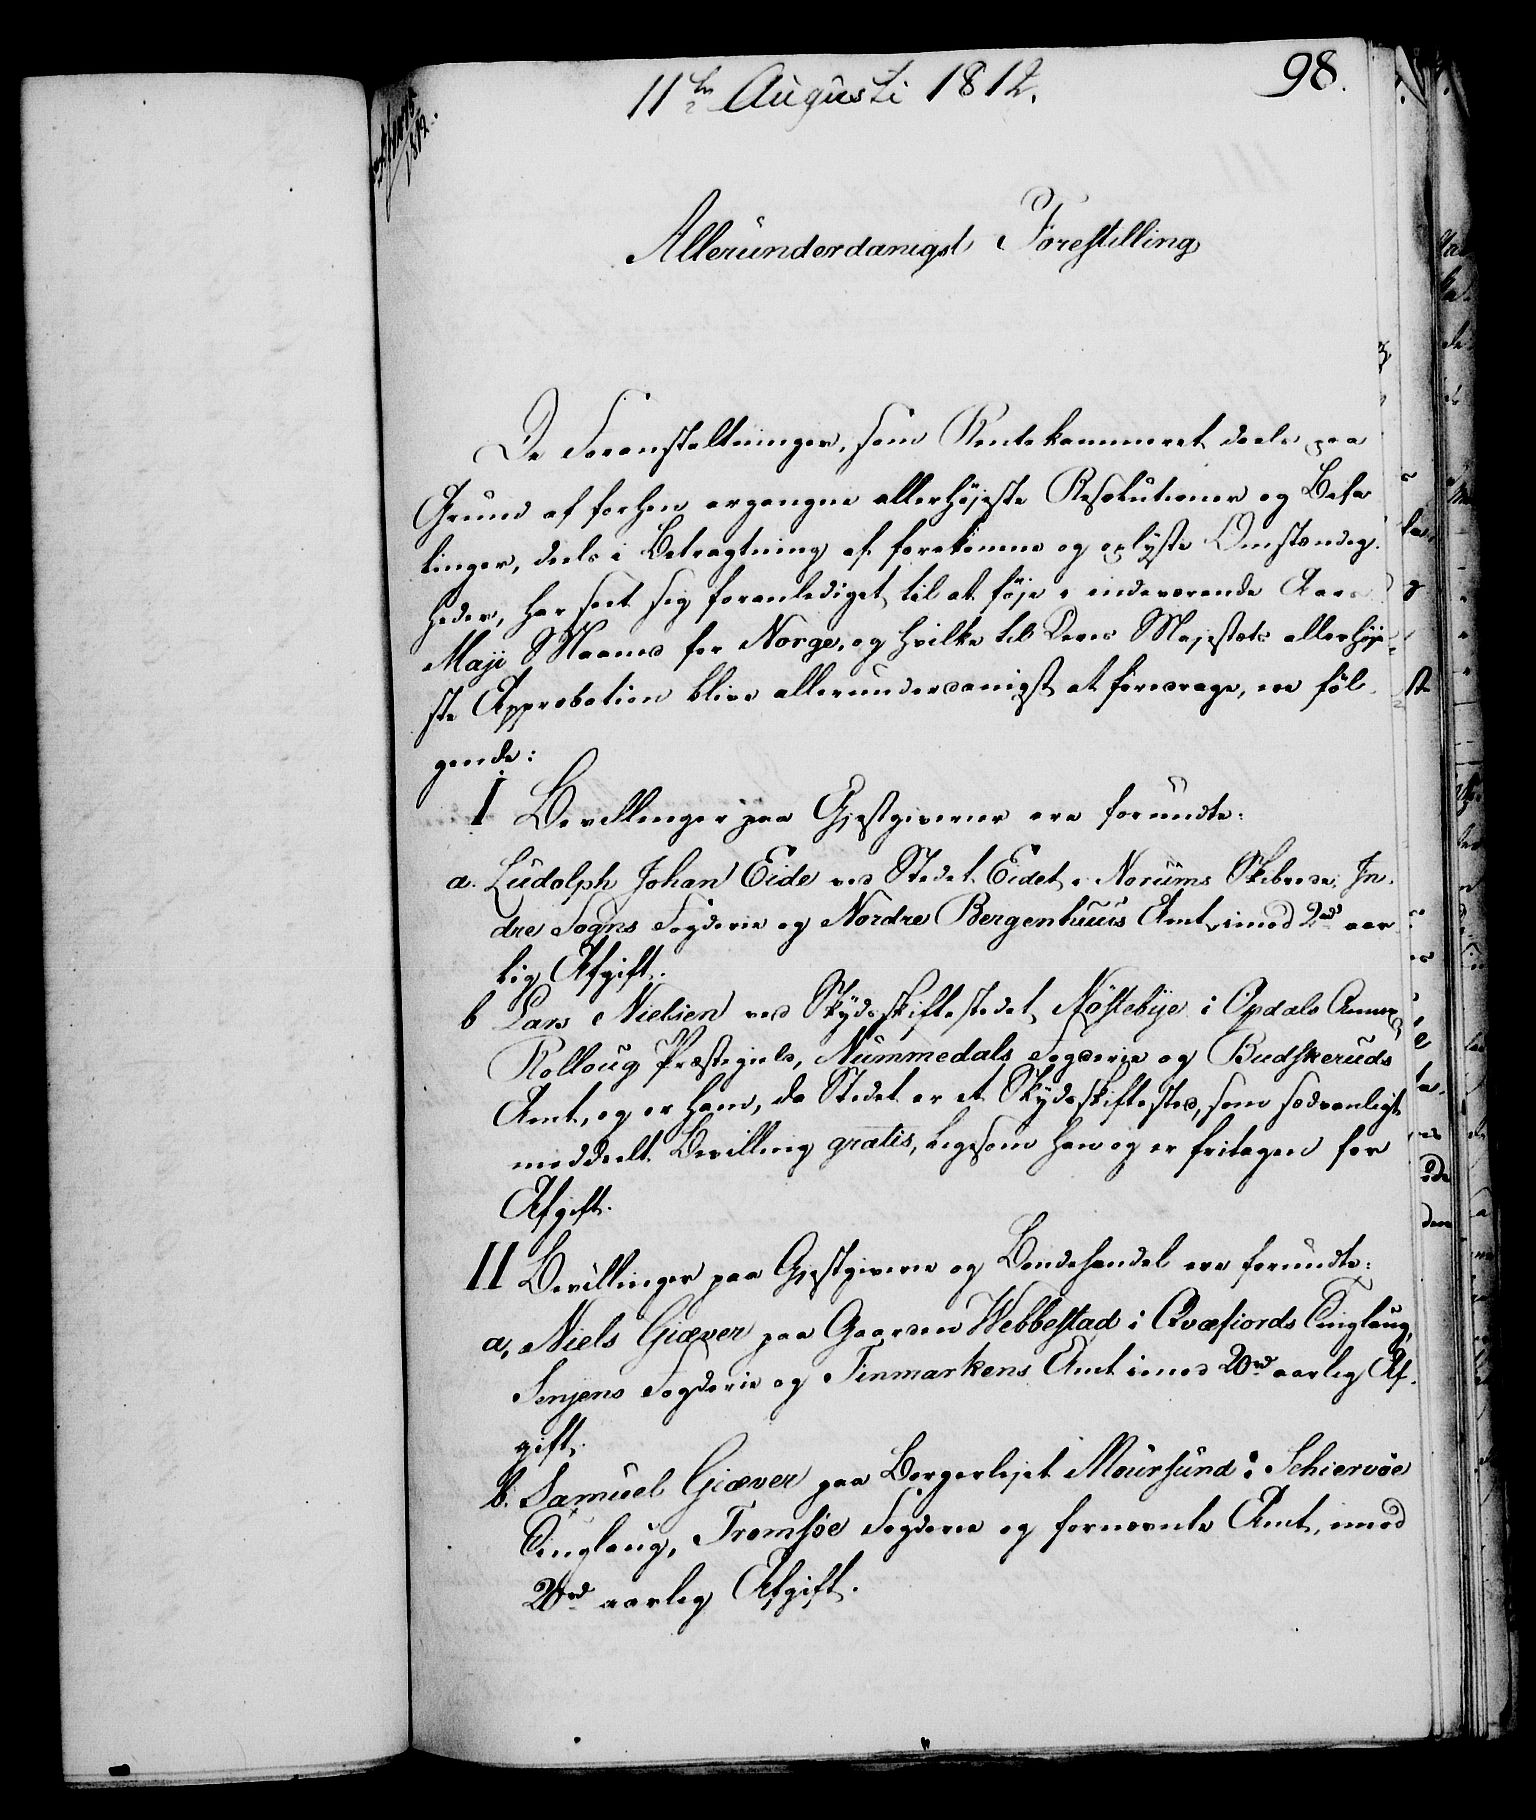 11te Augusti 1812.
98.
Allerunderdanigst Forestilling
De Foranstaltninger, som Rentekammeret deels paa
Grund af forhen ergangne allerhøjeste Resolutioner og Befa
linger, deels i Betragtning af forekomne og oplyste Omstændig-
heder, har seet sig foranlediget til at føje i indeværende Aars
Maji Maaned for Norge, og hvilke til Deres Majestæts allerhøje-
ste Approbation blive allerunderdanigst at foredrage, ere føl-
gende:
I Bevillinger paa Gjestgiverier ere forundte:
a. Ludolph Johan Eide ved Stedet Eidet i Norums Skibrede, In-
dre Sogns Fogderie og Nordre Bergenhuus Amt, imod 2rd aar-
lig Afgift.
b Lars Nielsen ved Skydsskiftestedet Nöstebye i Opdals Annex
Rolloug Præstegield, Nummedals Fogderie og Budskeruds
Amt, og er ham, da Stedet er et Skydsskiftested, som sædvanligt
meddeelt Bevilling gratis, ligesom han og er fritagen for
Afgift.
II Bevillinger paa Gjestgiverie og Bondehandel ere forundte:
a, Niels Giæver paa Gaarden Webbestad i Qvæfiords Tinglaug,
Senjens Fogderie og Finmarkens Amt imod 20rd aarlig Af-
gift.
b. Samuel Giæver paa Borgerlejet Maursund i Schiervöe
Tinglaug, Tromsöe Fogderie og fornævnte Amt, imod
20rd aarlig Afgift.